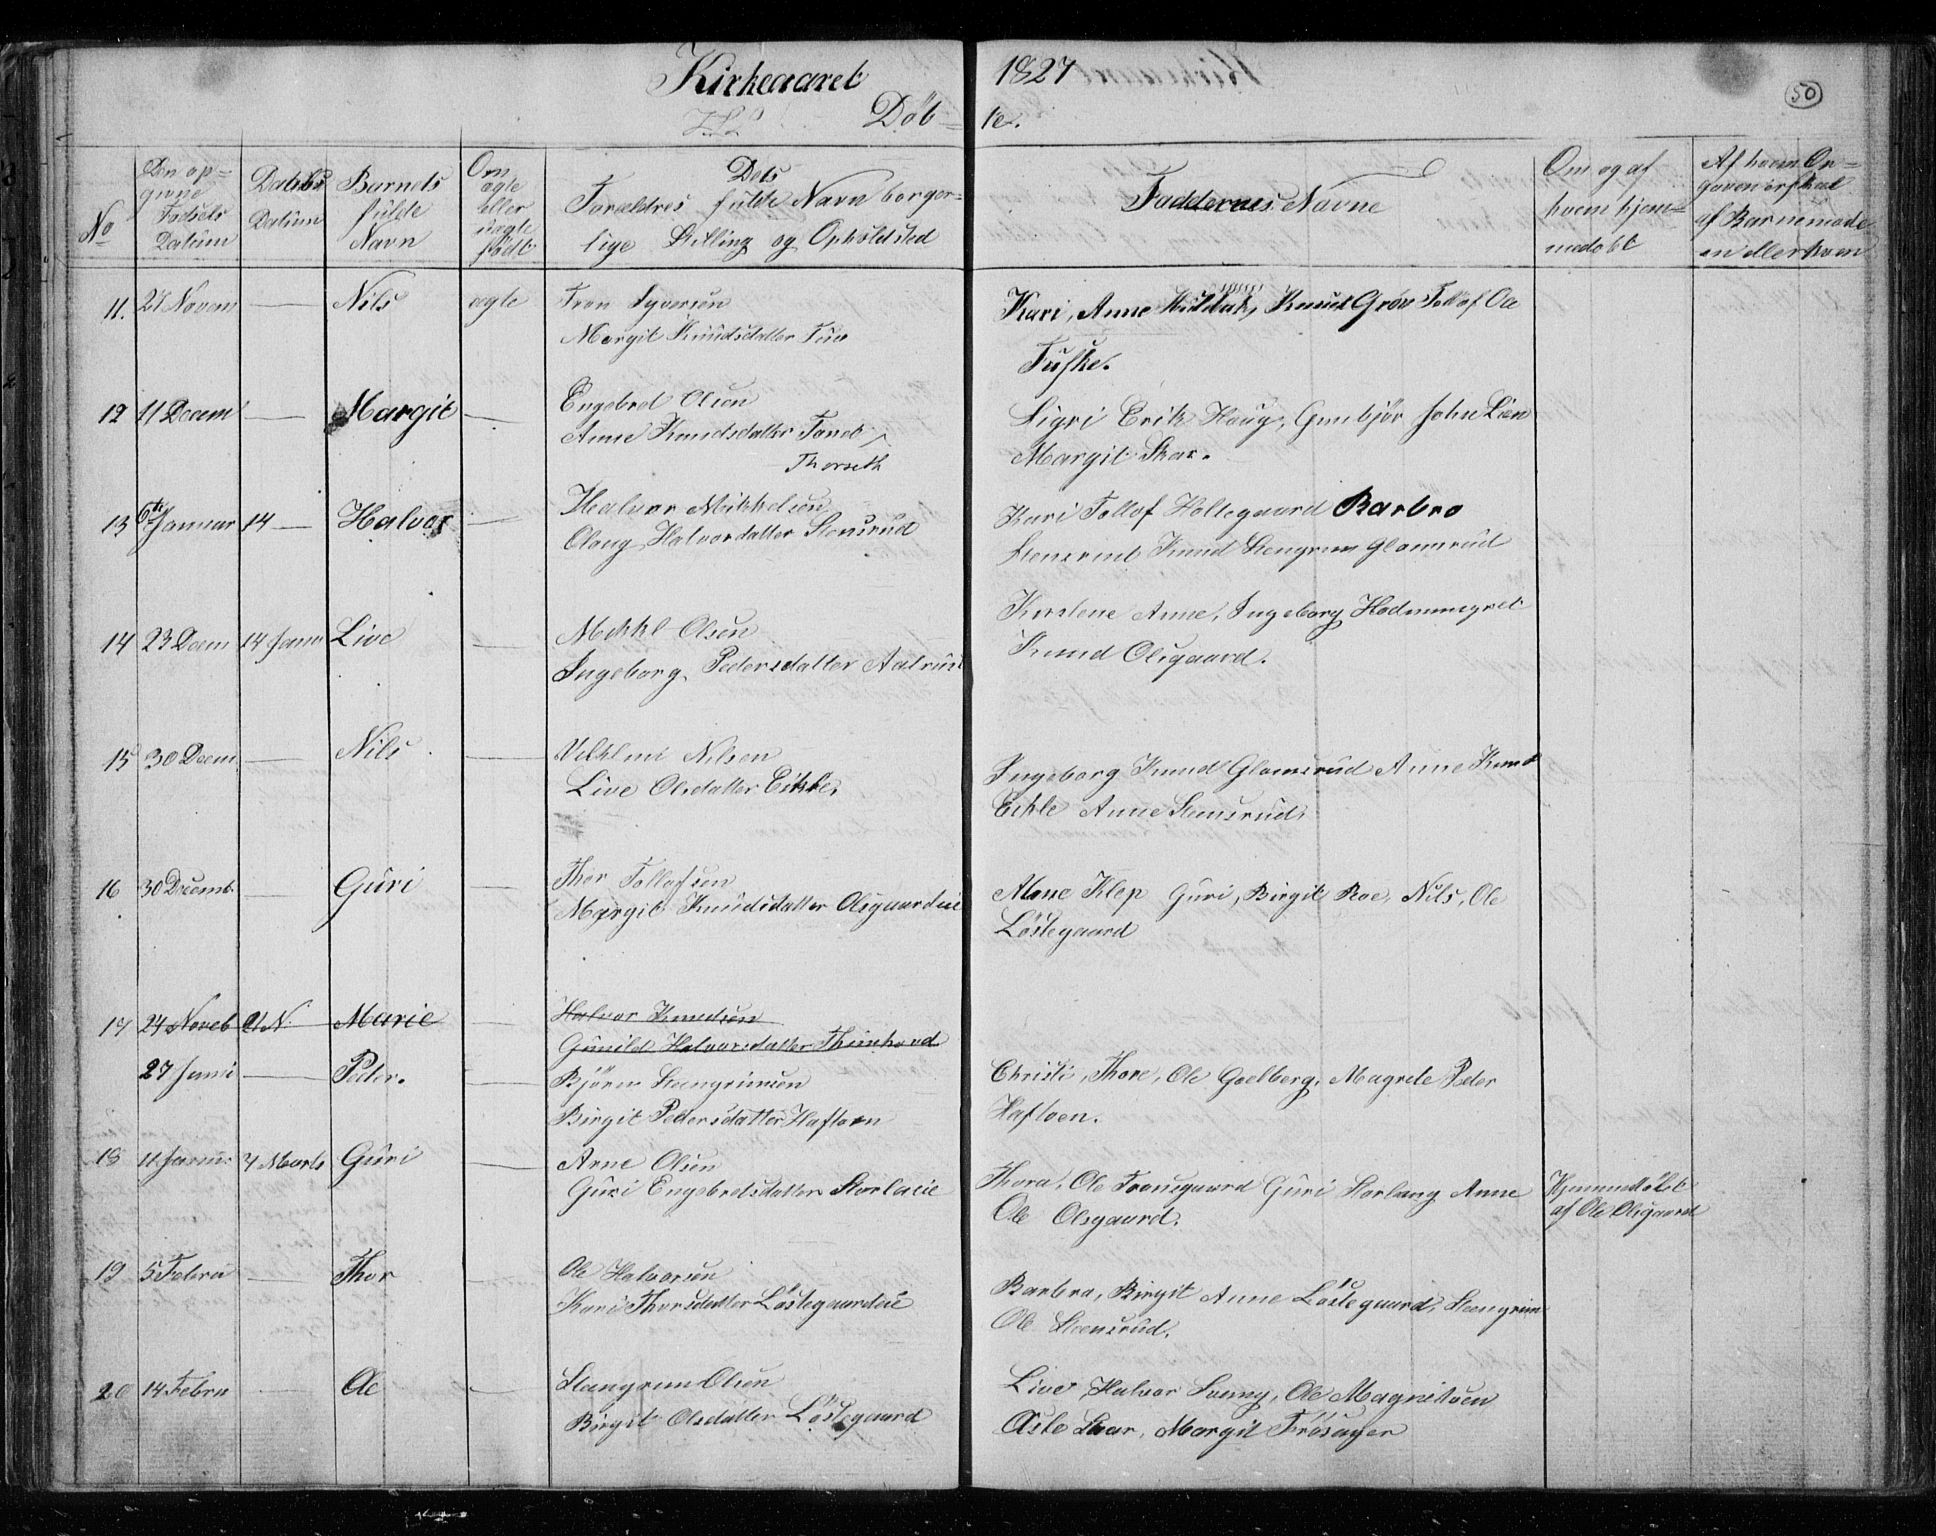 Kirkeaaret 1827
50
Döb= te.
No
Den op= givne Fødsels Datum
Daabs Datum
Barnets fulde Navn
Om ægte eller uægte født
Dets Forældres fulde Navn borger= lige Stilling og Opholdsted
Faddernes Navne
Om og af hvem hjem= medøbt
Af hvem An= gaven er skeet af Barnemode= en eller hvem
11. 27 Novem — Nils ægte Tron Syversen
Margit Knudsdatter
Kari, Anne Knud Grøv Tollof Ole
Tufske.
12 11 Decem — Margit — Engebret Olsen
Anne Knudsdatter
Thorseth
Sigri Erik Haug, Gunbjör John Lien
Margit Skar.
13 6te Januar 14 — Halvor — Halvor Mikkelsen
Olaug Halvordatter Stensrud
Kari Tollof Holtegaard Barbro
Stensrud Knud Stengrim Glamsrud
14 23 Decm 14 Janu Live — Mikkl Olsen
Ingeborg Pedersdatter
Kirstene Anne, Ingeborg
Knud Olsgaard.
15 30 Decm — Nils — Vilhlm Nilsen
Live Olsdatter Eikle.
Ingeborg Knud Glamsrud Anne Knud
Eikle Anne Stensrud.
16 30 Decemb. — Guri — Thor Tollofsen
Margit Knudsdatter Olsgaardeie
Mone Klep Guri, Birgit Roe, Nils, Ole
Löstegaard
17 24 Noveb 21 N. Marie — Halvor Knudsen
Gunild Halvorsdatter
27 Janu — Peder. — Björn Stengrimsen
Birgit Pedersdatter Haftoen
Christi, Thore, Ole Goelberg, Magrete Peder
Haftoen.
18 11 Janu 4 Marts Guri — Arne Olsen
Guri Engebretsdatter Storlaeie
Thora, Ole Tronsgaard Guri Storlang Anne
Ole Olsgaard.
Hjemmedöbt
af Ole Olsgaard
19 5 Febru — Thor — Ole Halvorsen
Kari Thorsdatter Löstegaardeie
Barbra, Birgit Anne Löstegaard, Stengrim
Ole Steensrud.
20 14 Febru — Ole — Stengrim Olsen
Birgit Olsdatter Löstegaard
Live Halvor Ole
Margit Trösager